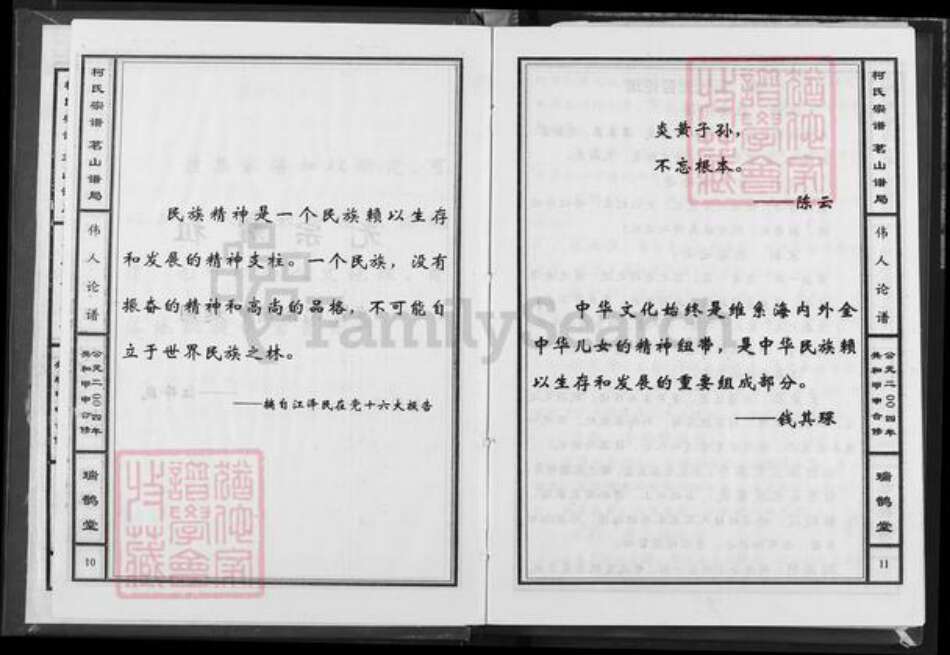 柯氏宗谱 茗山谱局
伟人论谱
公元二〇〇四年
共和甲申合修
瑞鹊堂
10
民族精神是一个民族赖以生存
和发展的精神支柱。一个民族，没有
振奋的精神和高尚的品格，不可能自
立于世界民族之林。
——摘自江泽民在党十六大报告
FamilySearch
炎黄子孙，
不忘根本。
——陈云
中华文化始终是维系海内外全
中华儿女的精神纽带，是中华民族赖
以生存和发展的重要组成部分。
——钱其琛
柯氏宗谱 茗山谱局
伟人论谱
公元二〇〇四年
共和甲申合修
瑞鹊堂
11